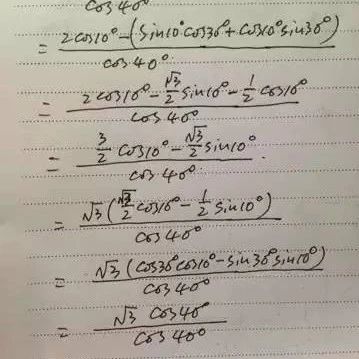 cos40°
= 2cos10°-(sin10°cos30°+cos10°sin30°) / cos40°
= 2cos10°-√3/2 sin10°-1/2 cos10° / cos40°
= 3/2 cos10°-√3/2 sin10° / cos40°
= √3(√3/2 cos10°-1/2 sin10°) / cos40°
= √3(cos30°cos10°-sin30°sin10°) / cos40°
= √3 cos40° / cos40°